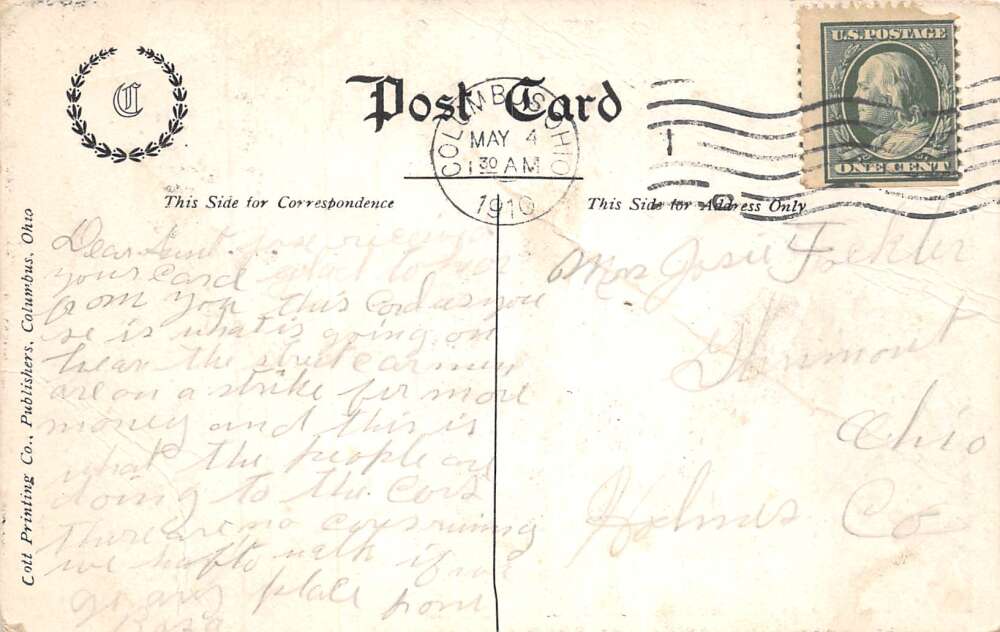 C
Post Card
COLUMBUS, OHIO
MAY 4
1 30 AM
1910
1
U.S. POSTAGE
ONE CENT
This Side for Correspondence
This Side for Address Only
Cott Printing Co., Publishers, Columbus, Ohio
Dear Aunt. Just received
your card glad to hear
from you this Card as you
se is what is going on
hear the street car men
are on a strike for more
money and this is
what the people are
doing to the Cars
there are no cars runing
we haf to walk if we
go any place from
Mrs Josie
Glenmont
Ohio
Holmes Co